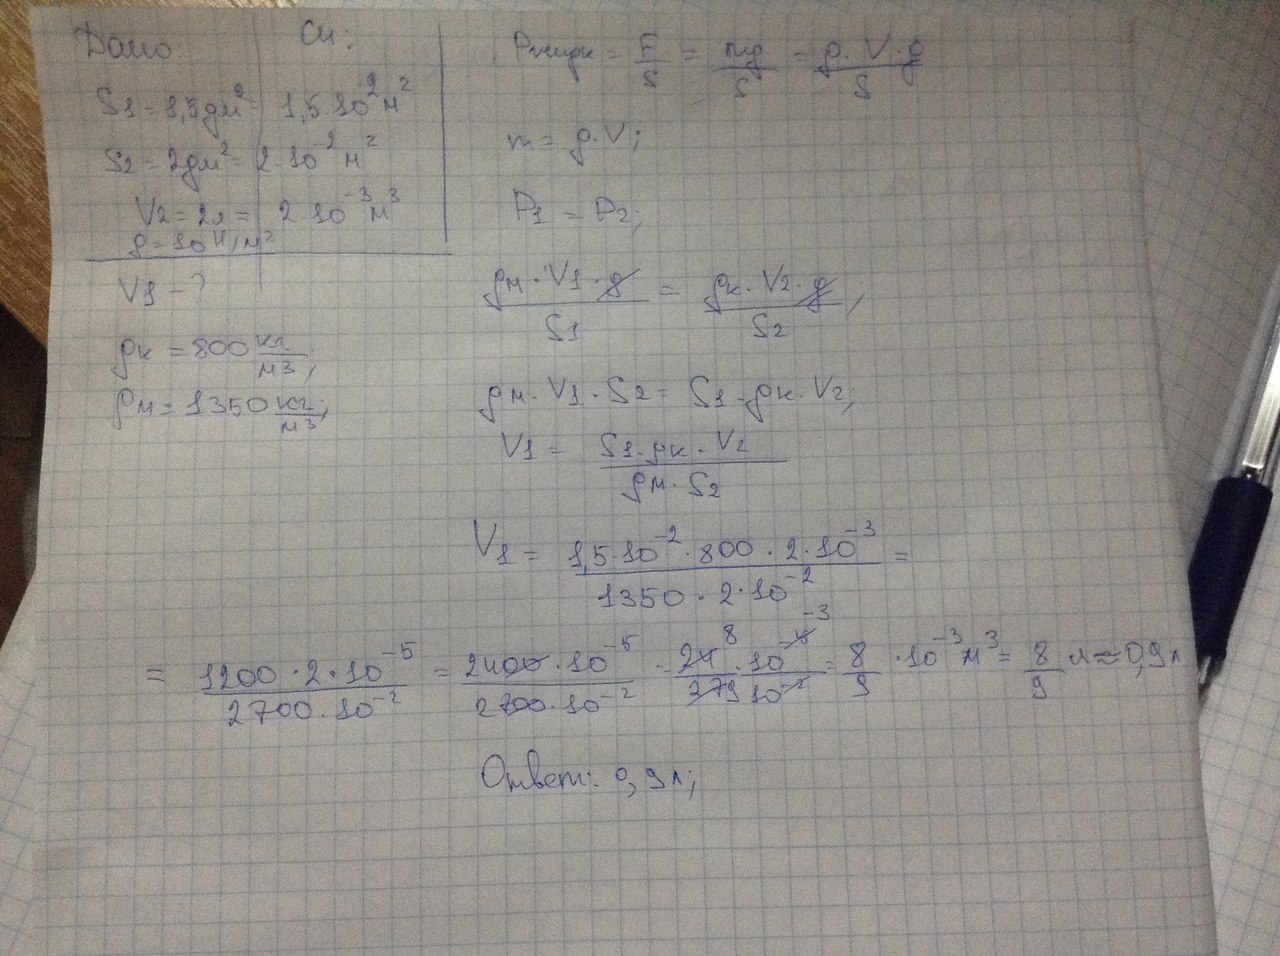 Дано Си:
S1 = 1,5дм² = 1,5·10² м²
S2 = 2дм² = 2·10⁻² м²
V2 = 2л = 2·10⁻³ м³
g = 10 Н/м²
V1 - ?
ρк = 800 кг/м3;
ρм = 1350 кг/м3;
Pжидк = F/S = mg/S = ρ·V·g/S
m = ρ·V;
P1 = P2;
ρм·V1·g/S1 = ρк·V2·g/S2;
ρм·V1·S2 = S1·ρк·V2;
V1 = S1·ρк·V2/ρм·S2
V1 = 1,5·10⁻²·800·2·10⁻³/1350·2·10⁻² =
= 1200·2·10⁻⁵/2700·10⁻² = 2400·10⁻⁵/2700·10⁻² = 24 8·10⁻⁵ ⁻³/27 9 10⁻² = 8/9 ·10⁻³ м³ = 8/9 л ≈ 0,9л
Ответ: 0,9л;